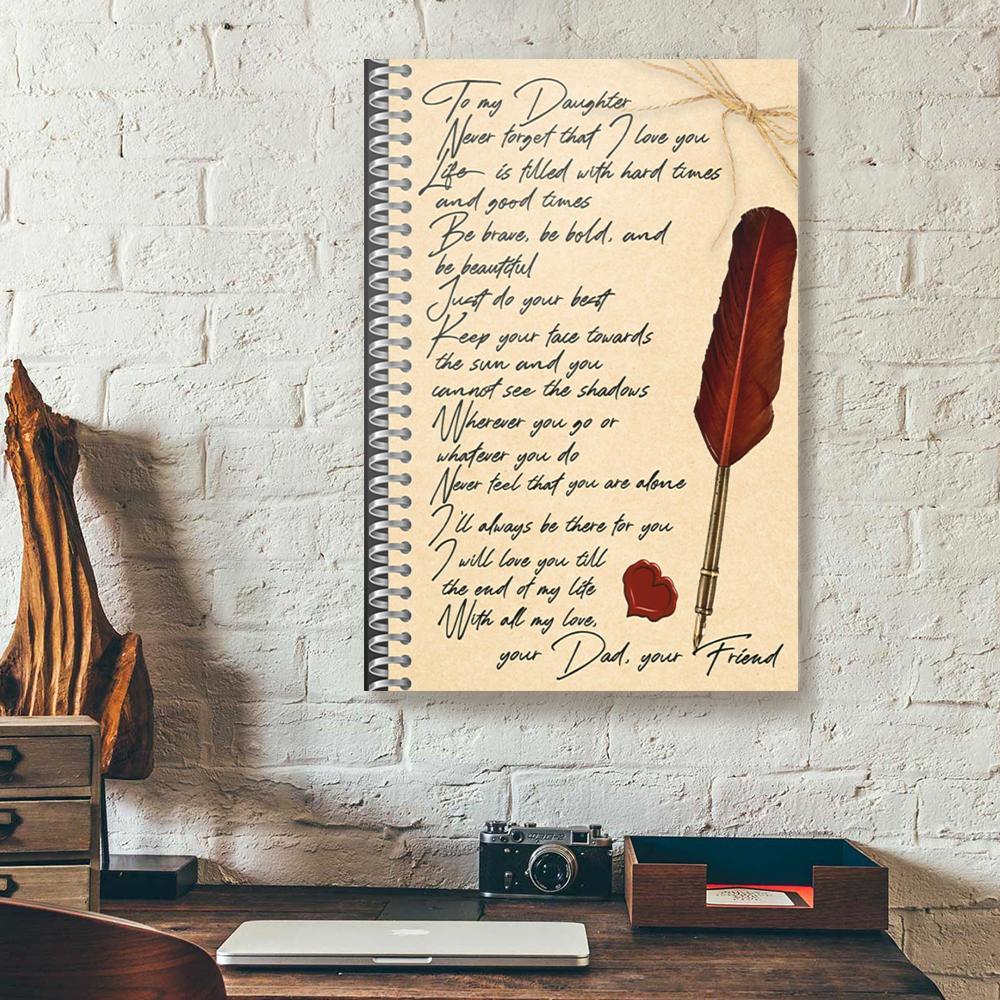 To my Daughter
Never forget that I love you
Life is filled with hard times
and good times
Be brave, be bold, and
be beautiful
Just do your best
Keep your face towards
the sun and you
cannot see the shadows
Wherever you go or
whatever you do
Never feel that you are alone
I'll always be there for you
I will love you till
the end of my life
With all my love,
your Dad, your Friend